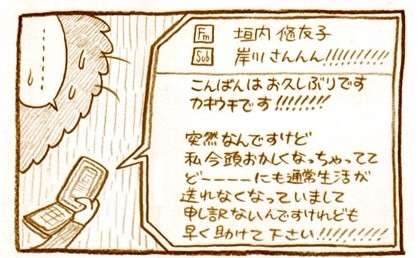 Fm 垣内悠友子
Sub 岸川さんんん!!!!!!!!!!
こんばんはお久しぶりです
カキウチです!!!!!!!!
突然なんですけど
私今頭おかしくなっちゃってて
どーーーーにも通常生活が
送れなくなっていまして
申し訳ないんですけれども
早く助けて下さい!!!!!!!!!!